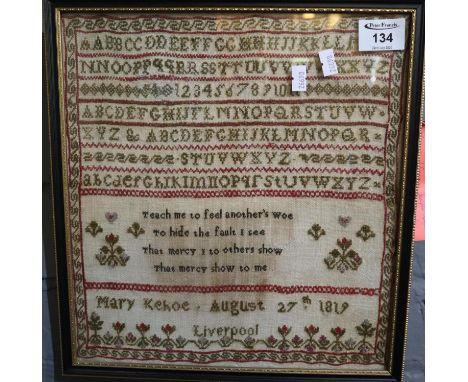 Peter Francis
134
AABBCCDDEEFFGGHHHJJKKLL
NNOOPPqqRRSSTTUUVV
12345678910
ABCDEFGHIJKLMNOPQRSTUVW
XYZ & ABCDEFGHIJKLMNOPQR
STUVWXYZ
abcdefghiklmnopqrstUVWXYZ
Teach me to feel another's woe
To hide the fault I see
That mercy I to others show
That mercy show to me
Mary Kehoe August 27th 1819
Liverpool